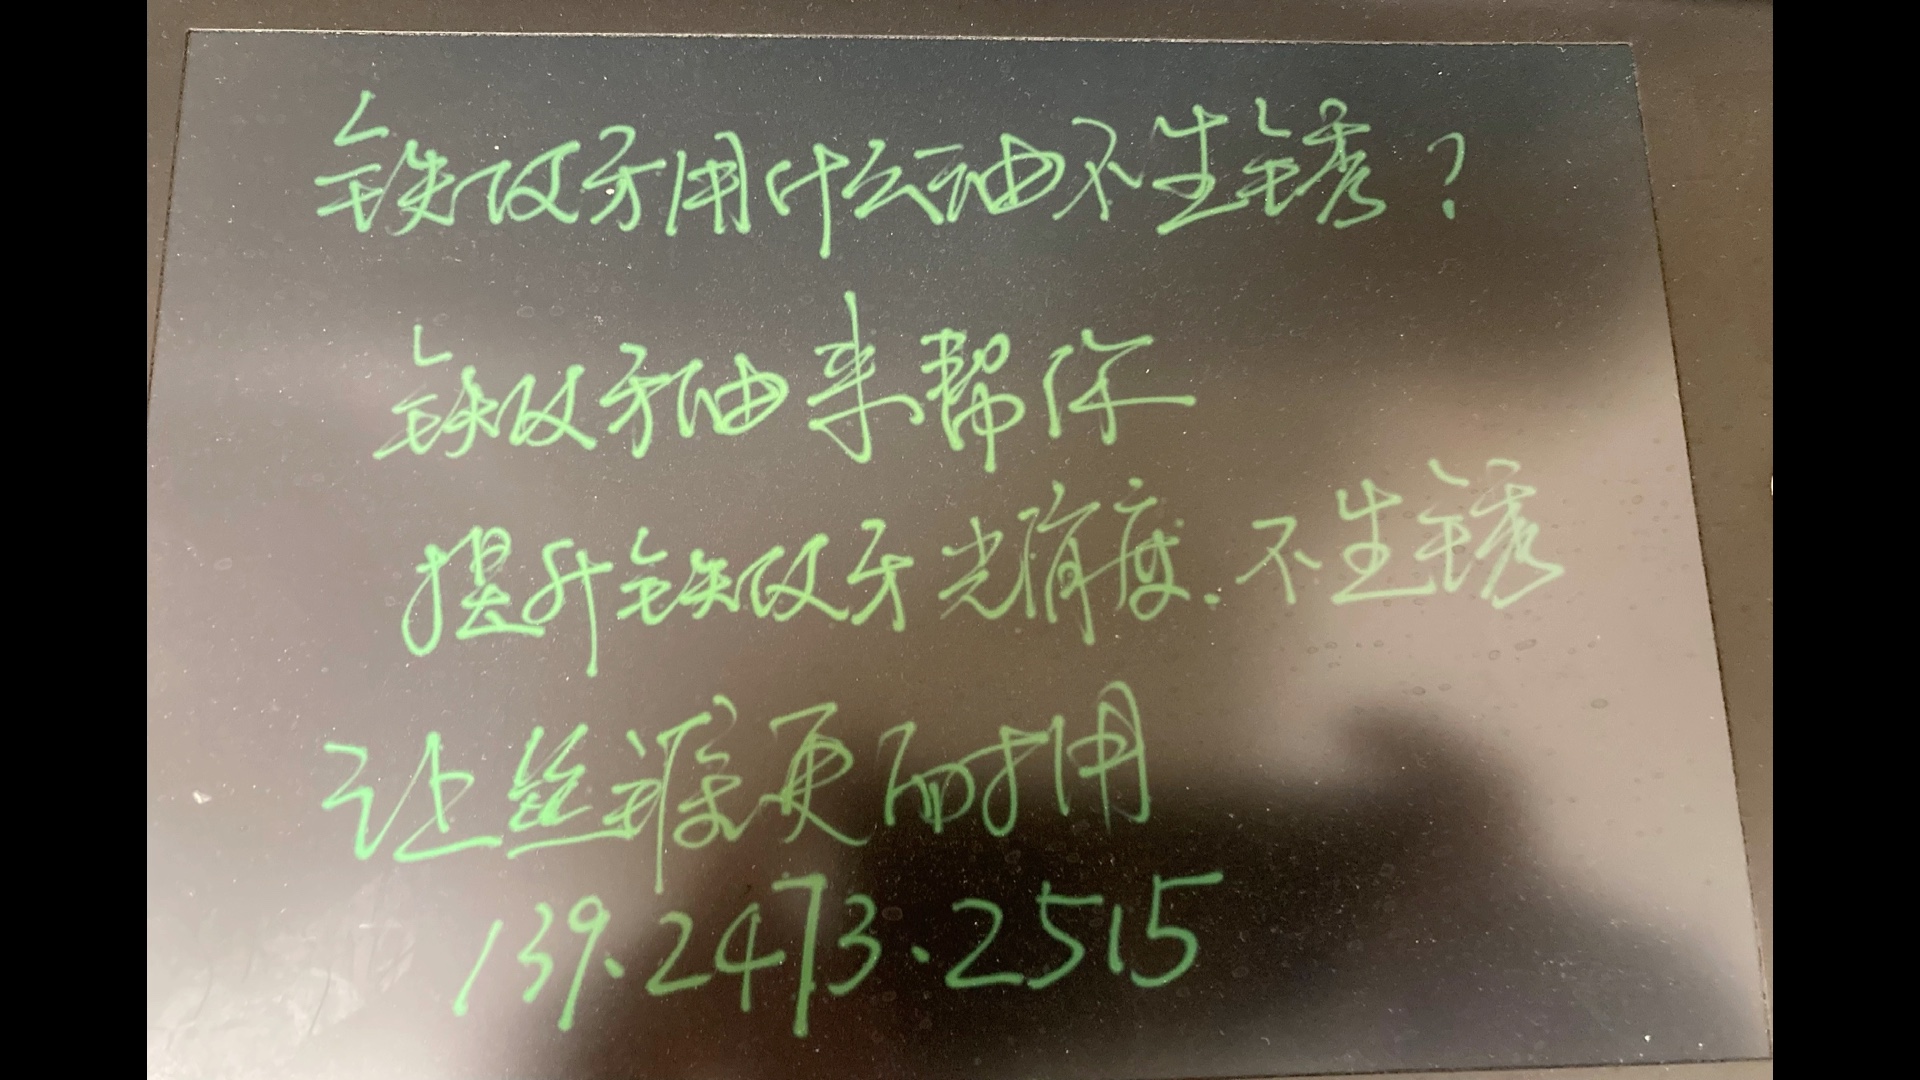 铁攻牙用什么油不生锈?
铁攻牙油来帮你
提升铁攻牙光有度.不生锈
让丝锥更耐用
139.2473.2515